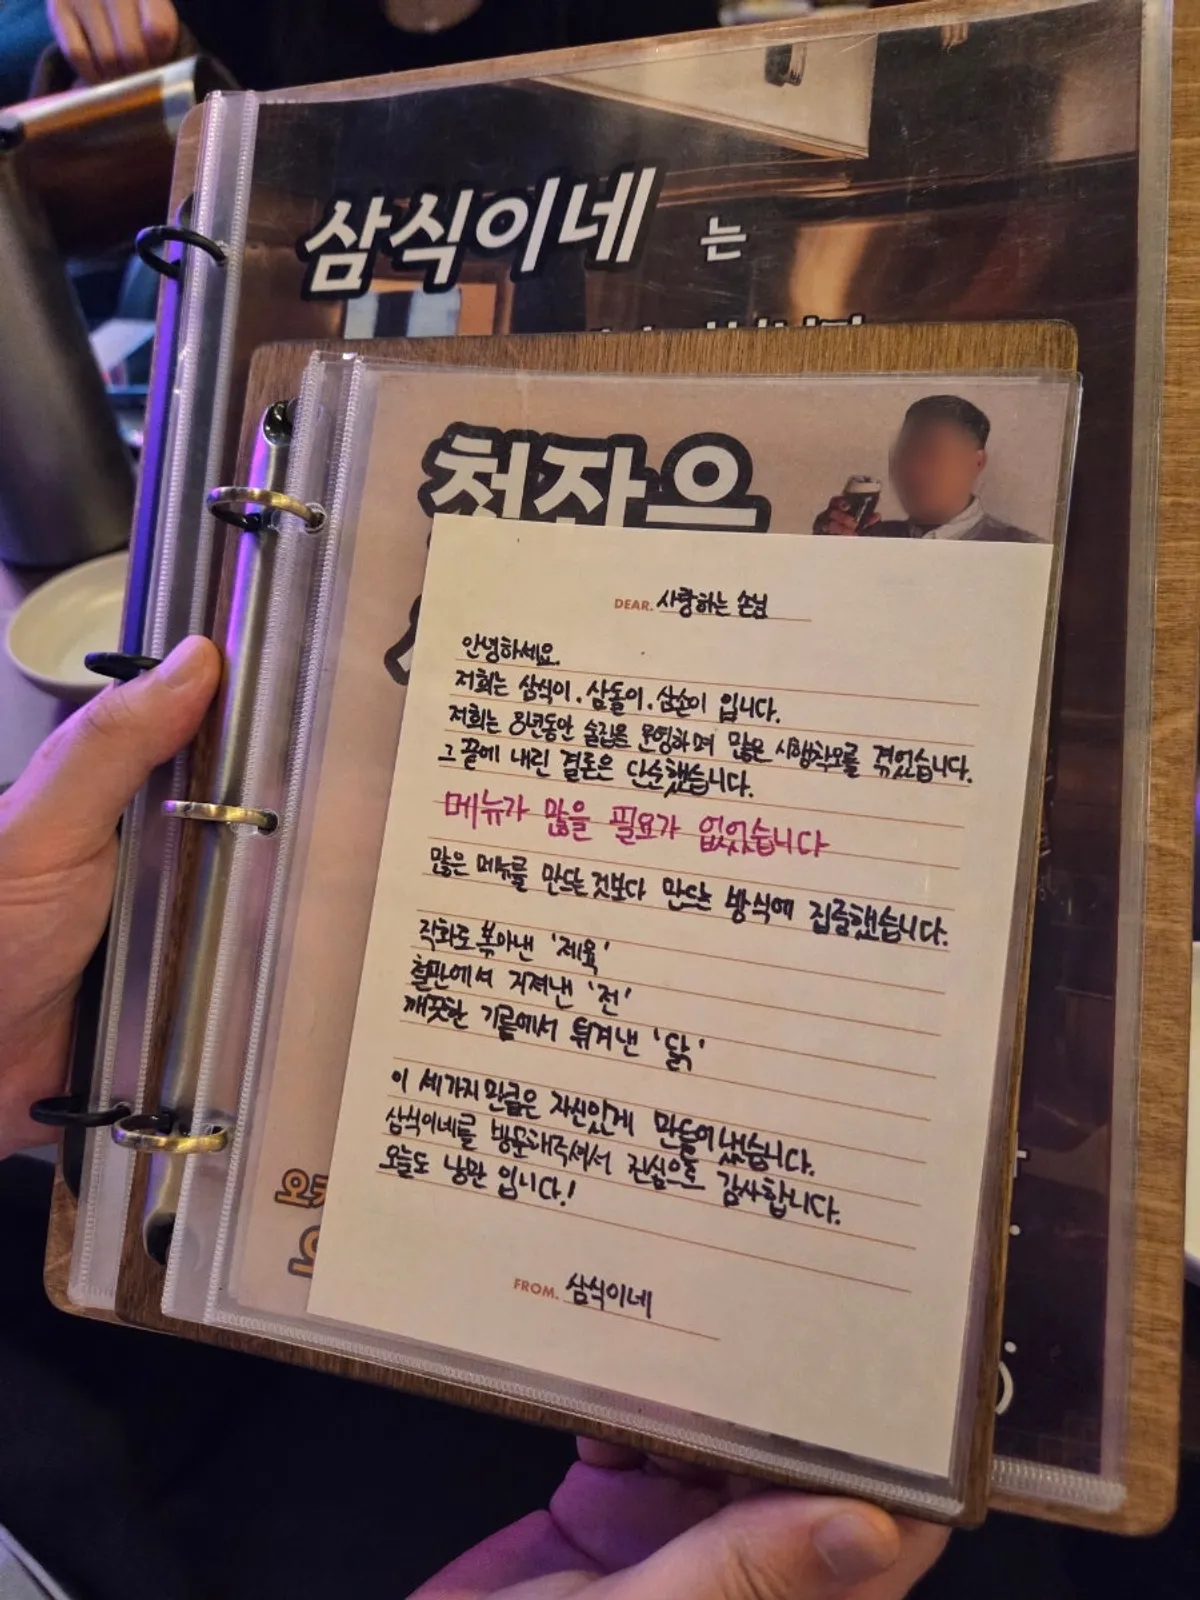 삼식이네 는
첫잔은
DEAR. 사랑하는 손님
안녕하세요.
저희는 삼식이. 삼돌이. 삼순이 입니다.
저희는 8년동안 술집을 운영하며 많은 시행착오를 겪었습니다.
그 끝에 내린 결론은 단순했습니다.
메뉴가 많을 필요가 없었습니다
많은 메뉴를 만드는것보다 만드는 방식에 집중했습니다.
직화로 볶아낸 '제육'
철판에서 지져낸 '전'
깨끗한 기름에서 튀겨낸 '닭'
이 세가지만큼은 자신있게 만들어냈습니다.
삼식이네를 방문해주셔서 진심으로 감사합니다.
오늘도 낭만 입니다!
FROM. 삼식이네